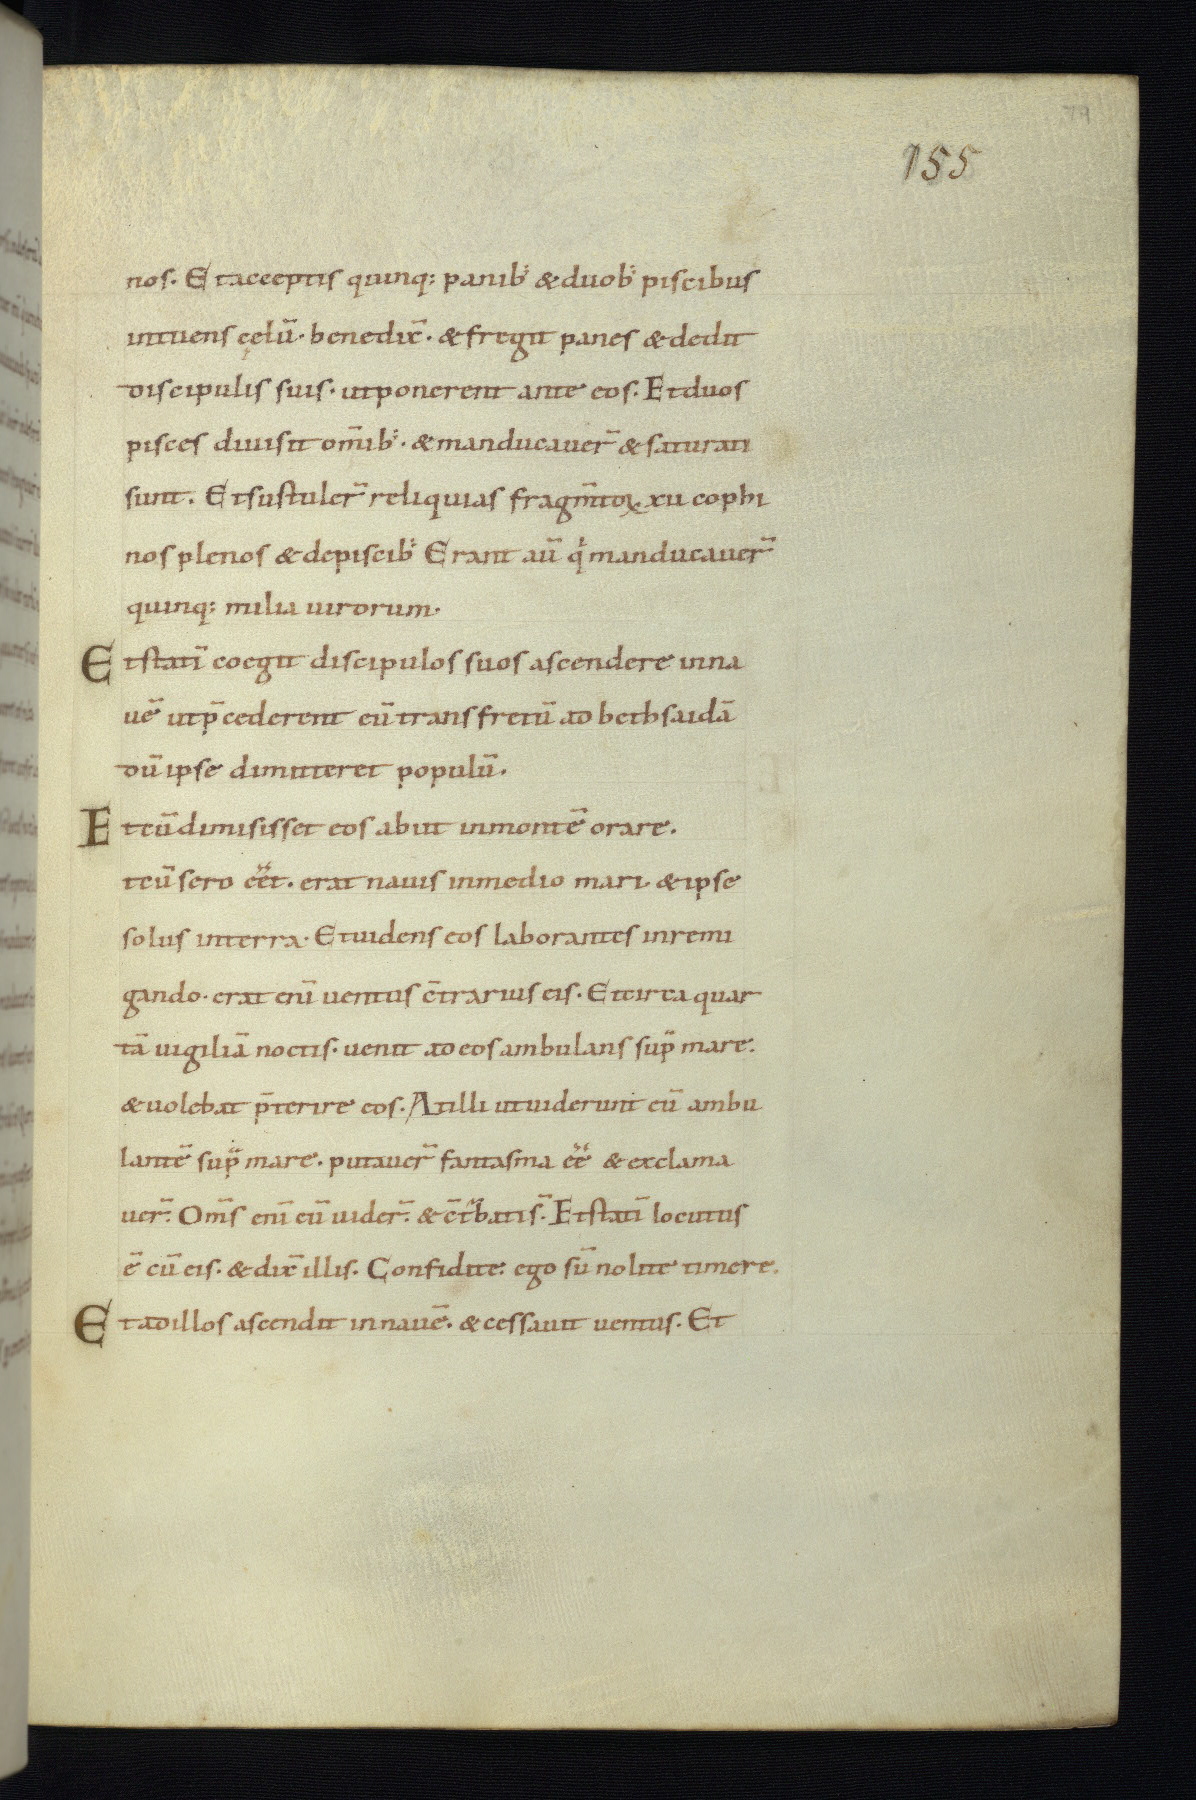 155
nos. Et acceptis quinq; panib; & duob; piscibus
intuens cęlū. benedix̄. & fregit panes & dedit
discipulis suis. ut ponerent ante eos. Et duos
pisces diuisit om̄ib;. & manducauer̄ & saturati
sunt. Et sustuler̄ reliquias fragm̄toꝝ. xii cophi
nos plenos & de piscib; Erant aū qͥ manducauer̄
quinq; milia uirorum.
Et statī coegit discipulos suos ascendere in na
uē ut p̄cederent eū trans fretū ad bethsaidā
dū ipse dimitteret populū.
Et cū dimisisset eos abiit in montē orare.
t cū sero eēt. erat nauis in medio mari. & ipse
solus in terra. Et uidens eos laborantes in remi
gando. erat enī uentus c̄trarius eis. Et circa quar
tā uigiliā noctis. uenit ad eos ambulans sup̄ mare.
& uolebat p̄terire eos. At illi ut uiderunt eū ambu
lantē sup̄ mare. putauer̄ fantasma eē & exclama
uer̄. Om̄s enī eū uider̄. & c̄tͬbati s̄. Et statī locutus
ē cū eis. & dix̄ illis. Confidite. ego sū nolite timere.
Et ad illos ascendit in nauē. & cessauit uentus. Et